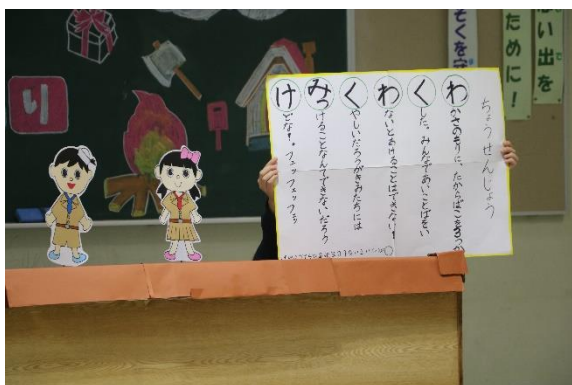 り
そくを守
い出を
ために！
ちょうせんじょう
わかさのもりに、たからばこを
くした。みんなであいことばをい
わないとあけることはできない！
くやしいだろうがきみたちには
みつけることなんてできないだろう
けどな！。フェッフェッフェッ